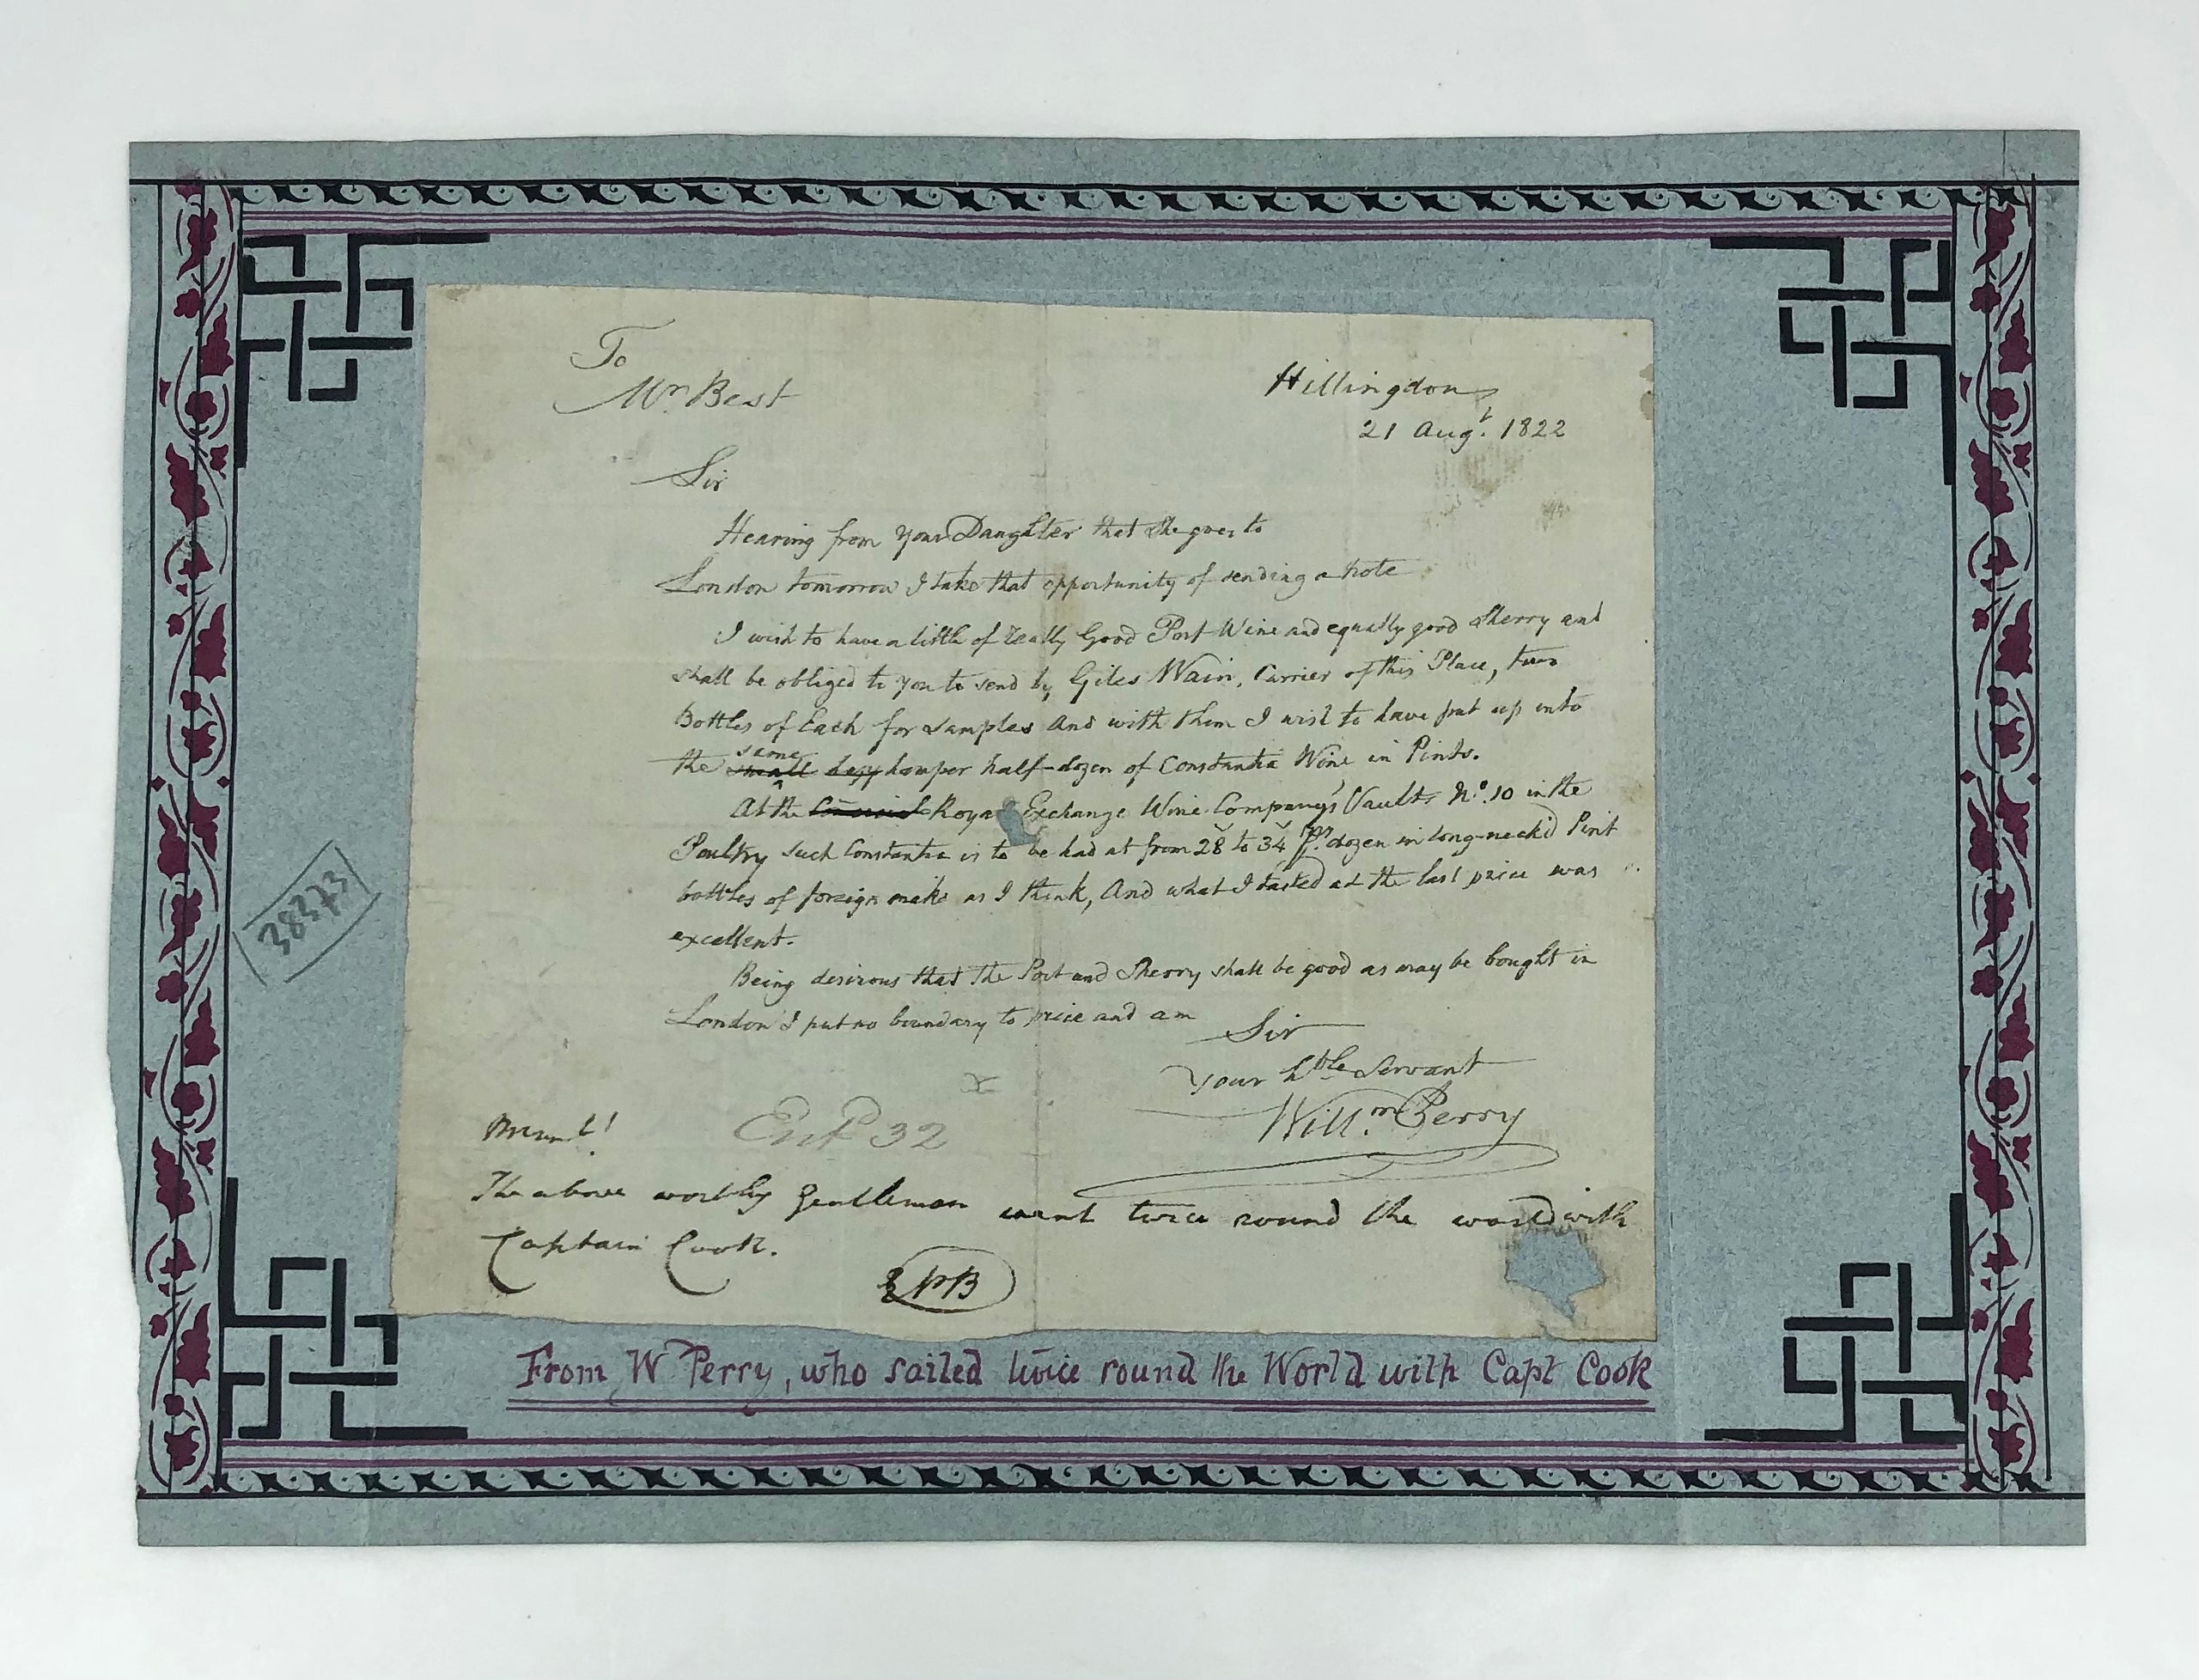 To
Mr. Best
Hillingdon
21 Augt. 1822
Sir
Hearing from your Daughter that she goes to
London tomorrow I take that opportunity of sending a note
I wish to have a little of really Good Port Wine and equally good Sherry and
shall be obliged to you to send by Giles Wain, Carrier of this Place, two
Bottles of Each for samples and with them I wish to have put up into
same
the small hamper half-dozen of Constantia Wine in Pints.
At the Royal Exchange Wine Company's Vaults No. 10 in the
Poultry such Constantia is to be had at from 28 to 34 pr. dozen in long-neck'd Pint
bottles of foreign make as I think, And what I tasted at the last price was
excellent.
Being desirous that the Port and Sherry shall be good as may be bought in
London I put no boundary to price and am
Sir
Your hble Servant
Willm. Perry
x
Entd 32
The above worthy gentleman went twice round the world with
Captain Cook.
38373
From W Perry, who sailed twice round the World with Capt Cook